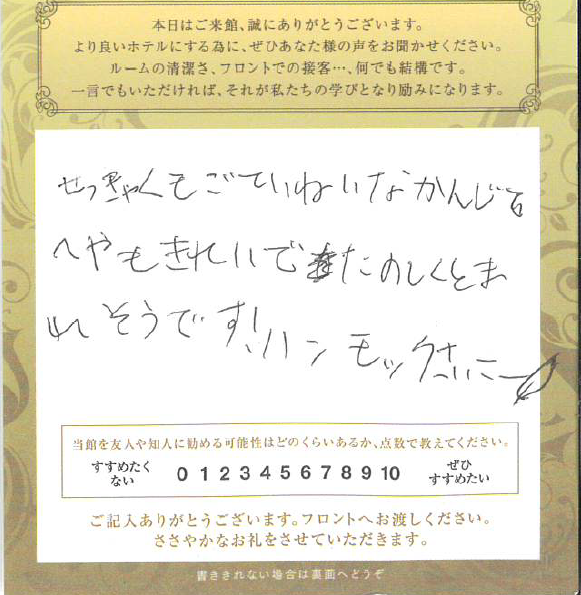 本日はご来館、誠にありがとうございます。
より良いホテルにする為に、ぜひあなた様の声をお聞かせください。
ルームの清潔さ、フロントでの接客…、何でも結構です。
一言でもいただければ、それが私たちの学びとなり励みになります。
せっきゃくもごていねいなかんじで
へやもきれいでたのしくとま
れそうです!ハンモックさいこー
当館を友人や知人に勧める可能性はどのくらいあるか、点数で教えてください。
すすめたくない 0 1 2 3 4 5 6 7 8 9 10 ぜひすすめたい
ご記入ありがとうございます。フロントへお渡しください。
ささやかなお礼をさせていただきます。
書ききれない場合は裏面へどうぞ